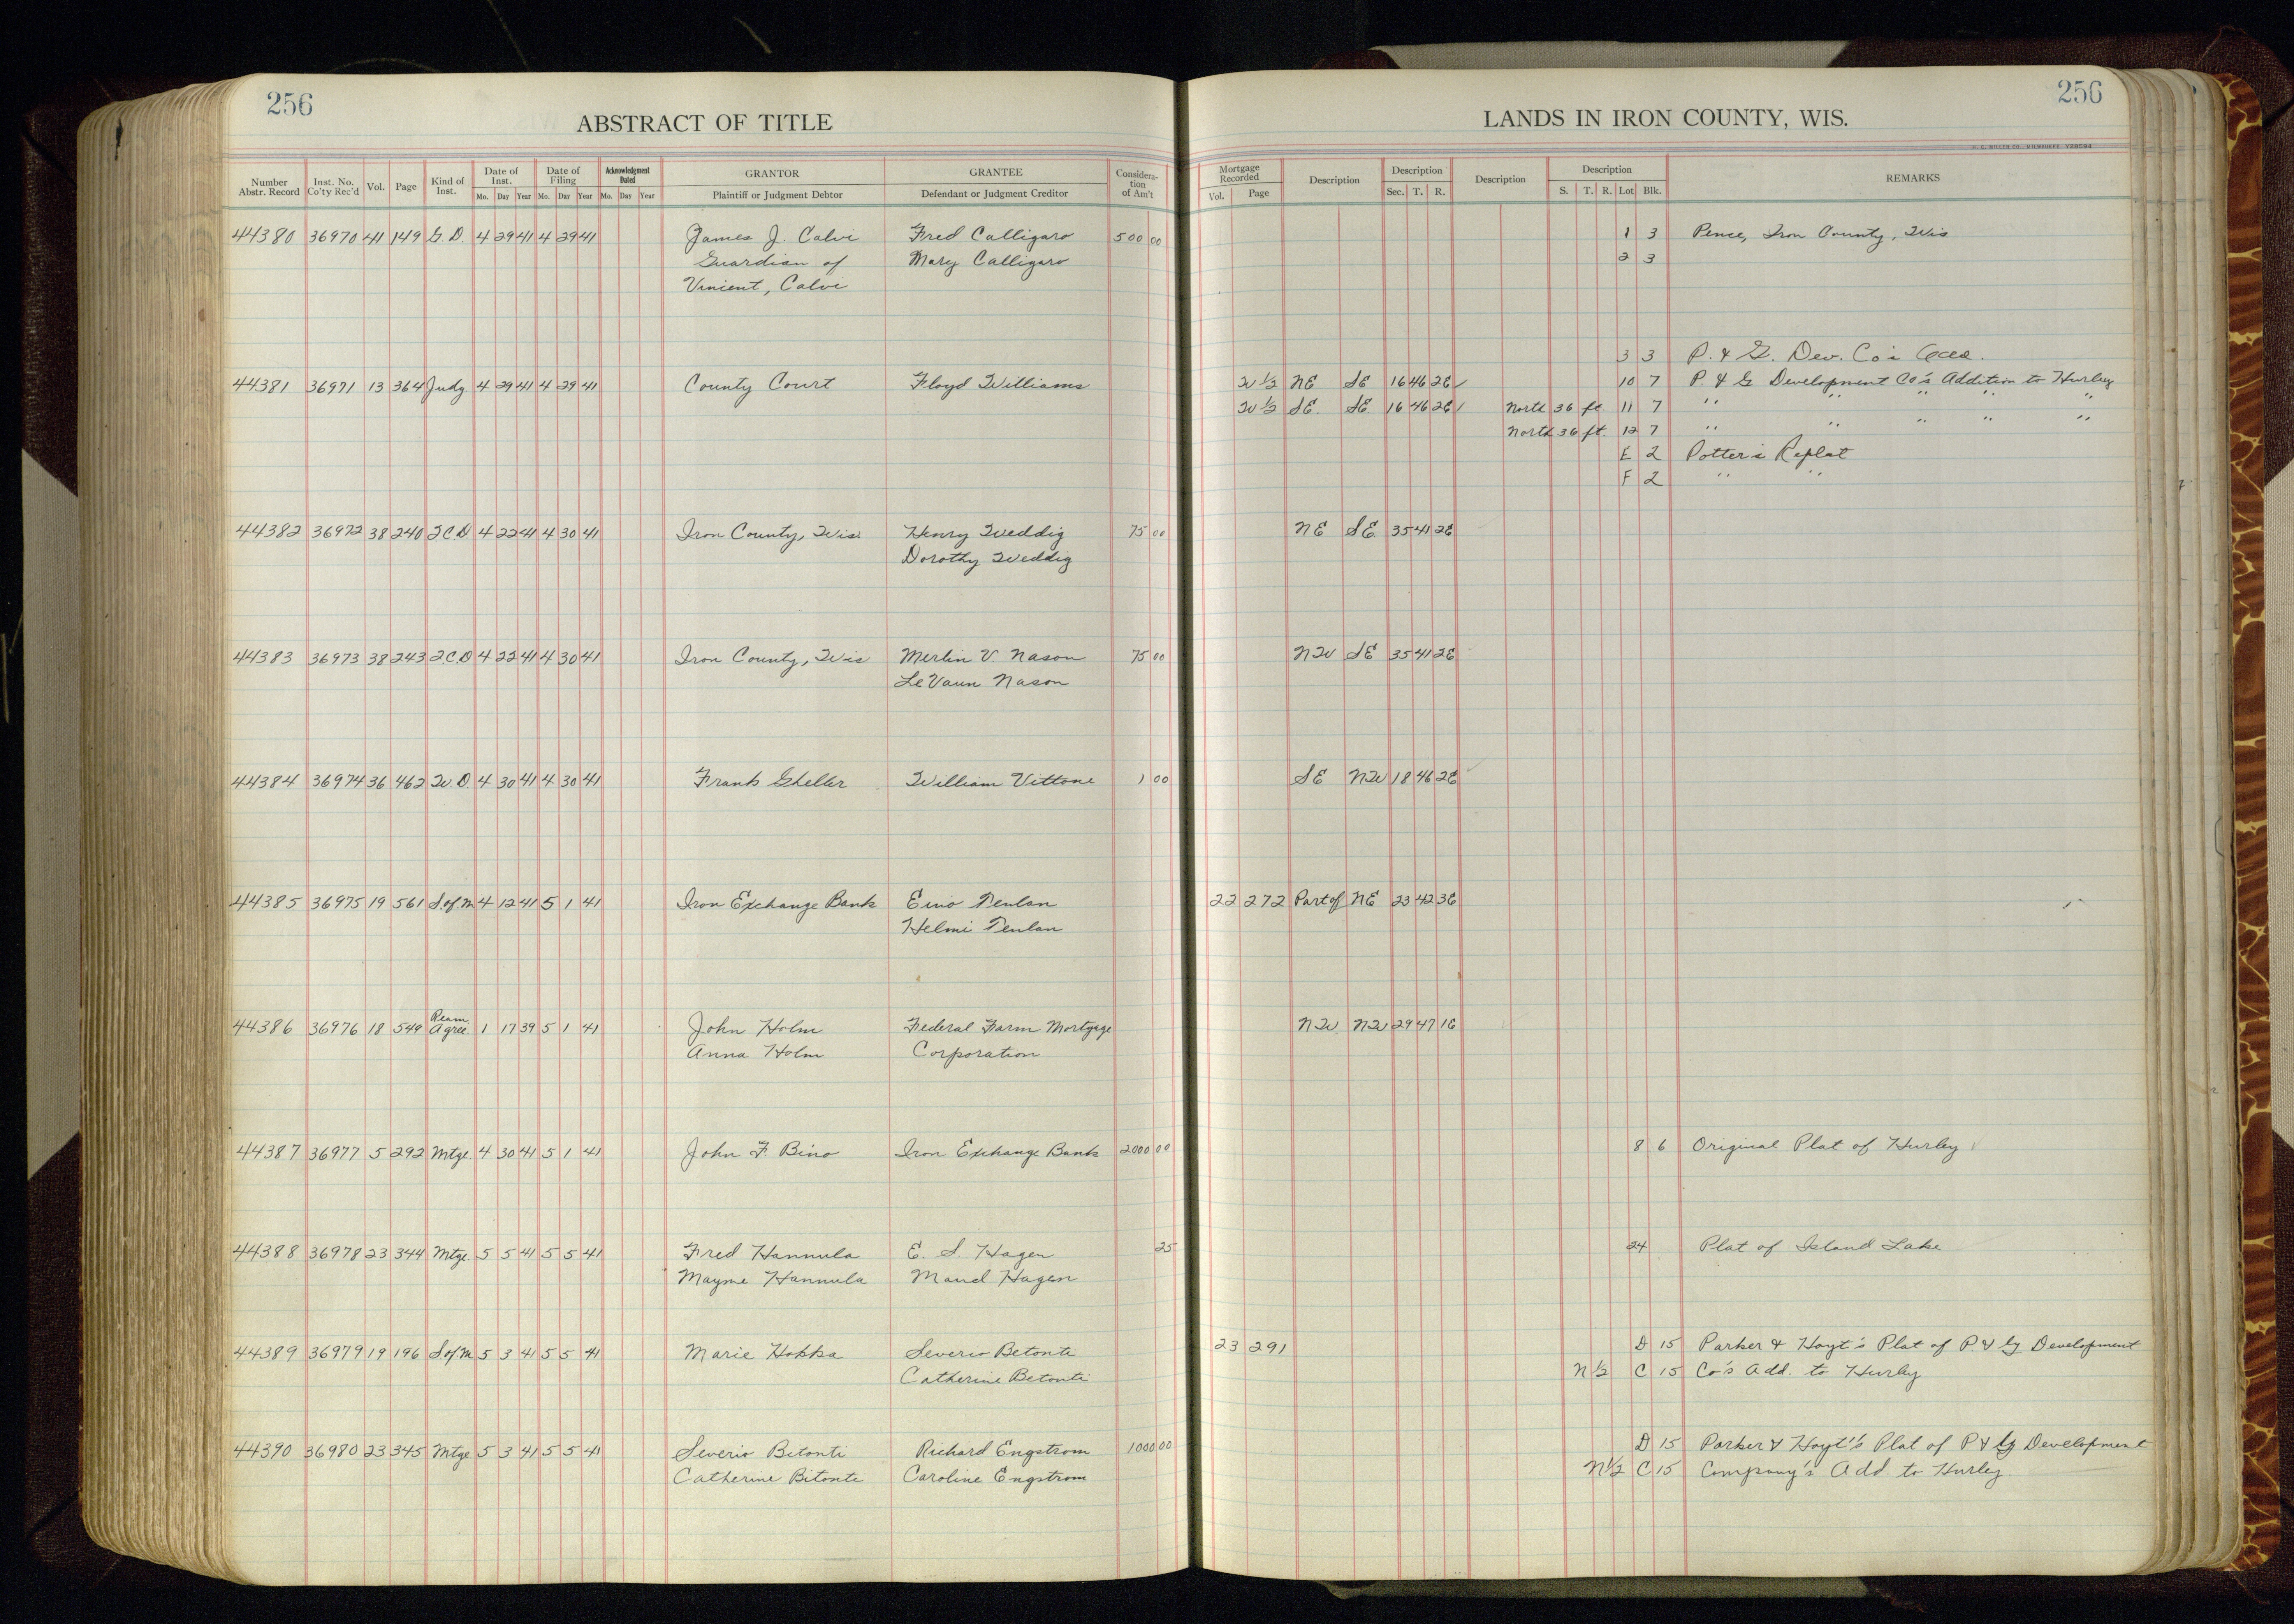 256
ABSTRACT OF TITLE
Number Abstr. Record Inst. No. Co'ty Rec'd Vol. Page Kind of Inst. Date of Inst. Mo. Day Year Date of Filing Mo. Day Year Acknowledgment Dated Mo. Day Year GRANTOR Plaintiff or Judgment Debtor GRANTEE Defendant or Judgment Creditor Consideration of Am't
44380 36970 41 149 G.D. 4 29 41 4 29 41 James J. Calvi Fred Calligaro 500 00
Guardian of Mary Calligaro
Vincent, Calvi
44381 36971 13 364 Judg. 4 29 41 4 29 41 County Court Floyd Williams
44382 36972 38 240 T.C.D. 4 22 41 4 30 41 Iron County, Wis. Henry Weddig 75 00
Dorothy Weddig
44383 36973 38 243 T.C.D 4 22 41 4 30 41 Iron County, Wis Merlin V. Nason 75 00
LeVaun Nason
44384 36974 36 462 W.D. 4 30 41 4 30 41 Frank Gheller William Vittone 1 00
44385 36975 19 561 S.of M 4 12 41 5 1 41 Iron Exchange Bank Eino Tenlan
Helmi Tenlan
44386 36976 18 549 Ream. Agree. 1 17 39 5 1 41 John Holm Federal Farm Mortgage
Anna Holm Corporation
44387 36977 5 292 Mtge. 4 30 41 5 1 41 John F. Bino Iron Exchange Bank 2000 00
44388 36978 23 344 Mtge. 5 5 41 5 5 41 Fred Hannula E. S. Hagen 25
Mayme Hannula Maud Hagen
44389 36979 19 196 S of M 5 3 41 5 5 41 Marie Hokka Severio Betonti
Catherine Betonti
44390 36980 23 345 Mtge. 5 3 41 5 5 41 Severio Bitonti Richard Engstrom 1000 00
Catherine Bitonti Caroline Engstrom
256
LANDS IN IRON COUNTY, WIS.
H. C. MILLER CO., MILWAUKEE
Mortgage Recorded Vol. Page Description Description Sec. T. R. Description Description S. T. R. Lot Blk. REMARKS
1 3 Pence, Iron County, Wis
2 3
3 3 P. & G. Dev. Co's
W ½ NE SE 16 46 2E 10 7 P. & G Development Co's Addition to Hurley
W ½ SE. SE 16 46 2E North 36 ft. 11 7 " " " " "
North 36 ft. 12 7 " " " " "
E 2 Potter's Replat
F 2 " "
NE SE 35 41 2E
NW SE 35 41 2E
SE NW 18 46 2E
22 272 Part of NE 23 42 3E
NW. NW 29 47 1E
8 6 Original Plat of Hurley
24 Plat of Island Lake
23 291 D 15 Parker & Hoyt's Plat of P. & G Development
N ½ C 15 Co's Add. to Hurley
D 15 Parker & Hoyt's Plat of P & G Development
N ½ C 15 Company's Add. to Hurley.